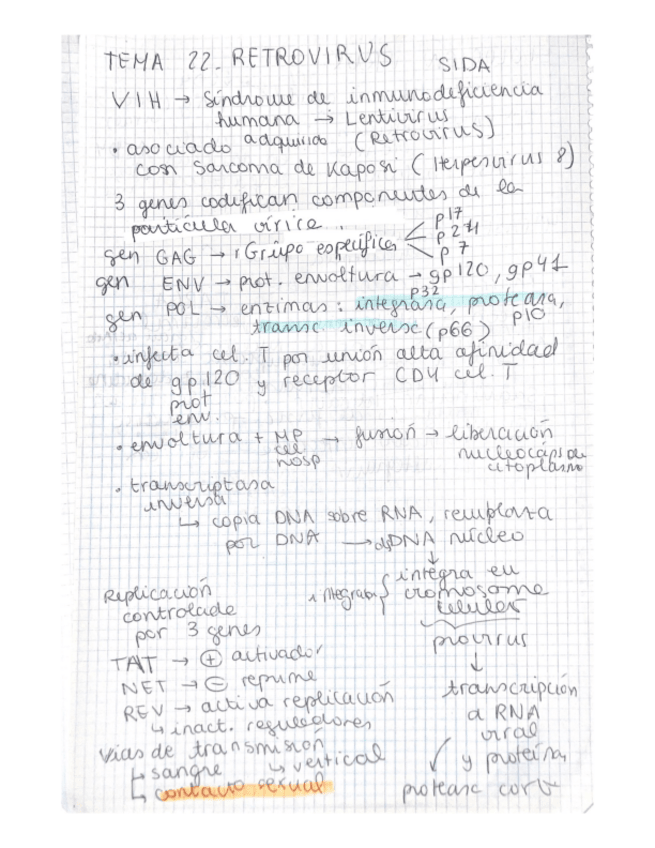 TEMA 22. RETROVIRUS SIDA
VIH → Síndrome de inmunodeficiencia
humana → Lentivirus
adquirida (Retrovirus)
• asociado
con Sarcoma de Kaposi (Herpesvirus 8)
3 genes codifican componentes de la
partícula vírica.
gen GAG → Grupo específico < p17
p24
p7
gen ENV → prot. envoltura → gp120, gp41
p32
gen POL → enzimas: integrasa, proteasa,
transc. inversa (p66) p10
• infecta cel. T por unión alta afinidad
de gp120 y receptor CD4 cel. T
prot
env.
• envoltura + MP → fusión → liberación
cel
hosp
nucleocáps. a
citoplasma
• transcriptasa
inversa
↳ copia DNA sobre RNA, remplaza
por DNA → dsDNA núcleo
↓
integrasa { integra en
cromosoma
celular
provirus
↓
transcripción
a RNA
viral
y proteína,
proteasa corta
Replicación
controlada
por 3 genes
TAT → ⊕ activador
NET → ⊖ reprime
REV → activa replicación
↳ inact. reguladores
Vías de transmisión
↳ sangre ↳ vertical
↳ contacto sexual